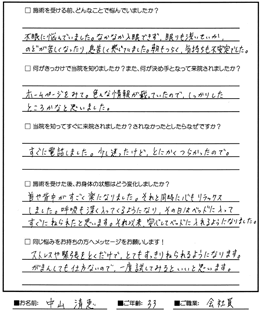 □ 施術を受ける前、どんなことで悩んでいましたか？
不眠に悩んでいました。なかなか入眠できず、眠りも浅いせいか、
のどが苦しくなったり、息苦しく感じました。朝もつらく、気持ちも不安定でした。
□ 何がきっかけで当院を知りましたか？また、何が決め手となって来院されましたか？
ホームページをみて。色んな情報が載っていたので、しっかりした
ところかなと思いました。
□ 当院を知ってすぐに来院されましたか？されなかったとしたらなぜですか？
すぐに電話しました。少し迷ったけど、とにかくつらかったので。
□ 施術を受けた後、お身体の状態はどう変化しましたか？
首や背中がすごく楽になりました。それと同時に心もリラックス
しました。呼吸も深く入ってくるようになり、その日はベッドに入って
すぐにねられたと思います。それ以来、安心してベッドに入れるようになりました。
□ 同じ悩みをお持ちの方へメッセージをお願いします！
ストレスや緊張をとくだけで、とてもすっきりねられるようになります。
がまんしても仕方ないので、一度試してみるといいと思います。
■お名前: 中山 清恵 ■ご年齢: 33 ■ご職業: 会社員